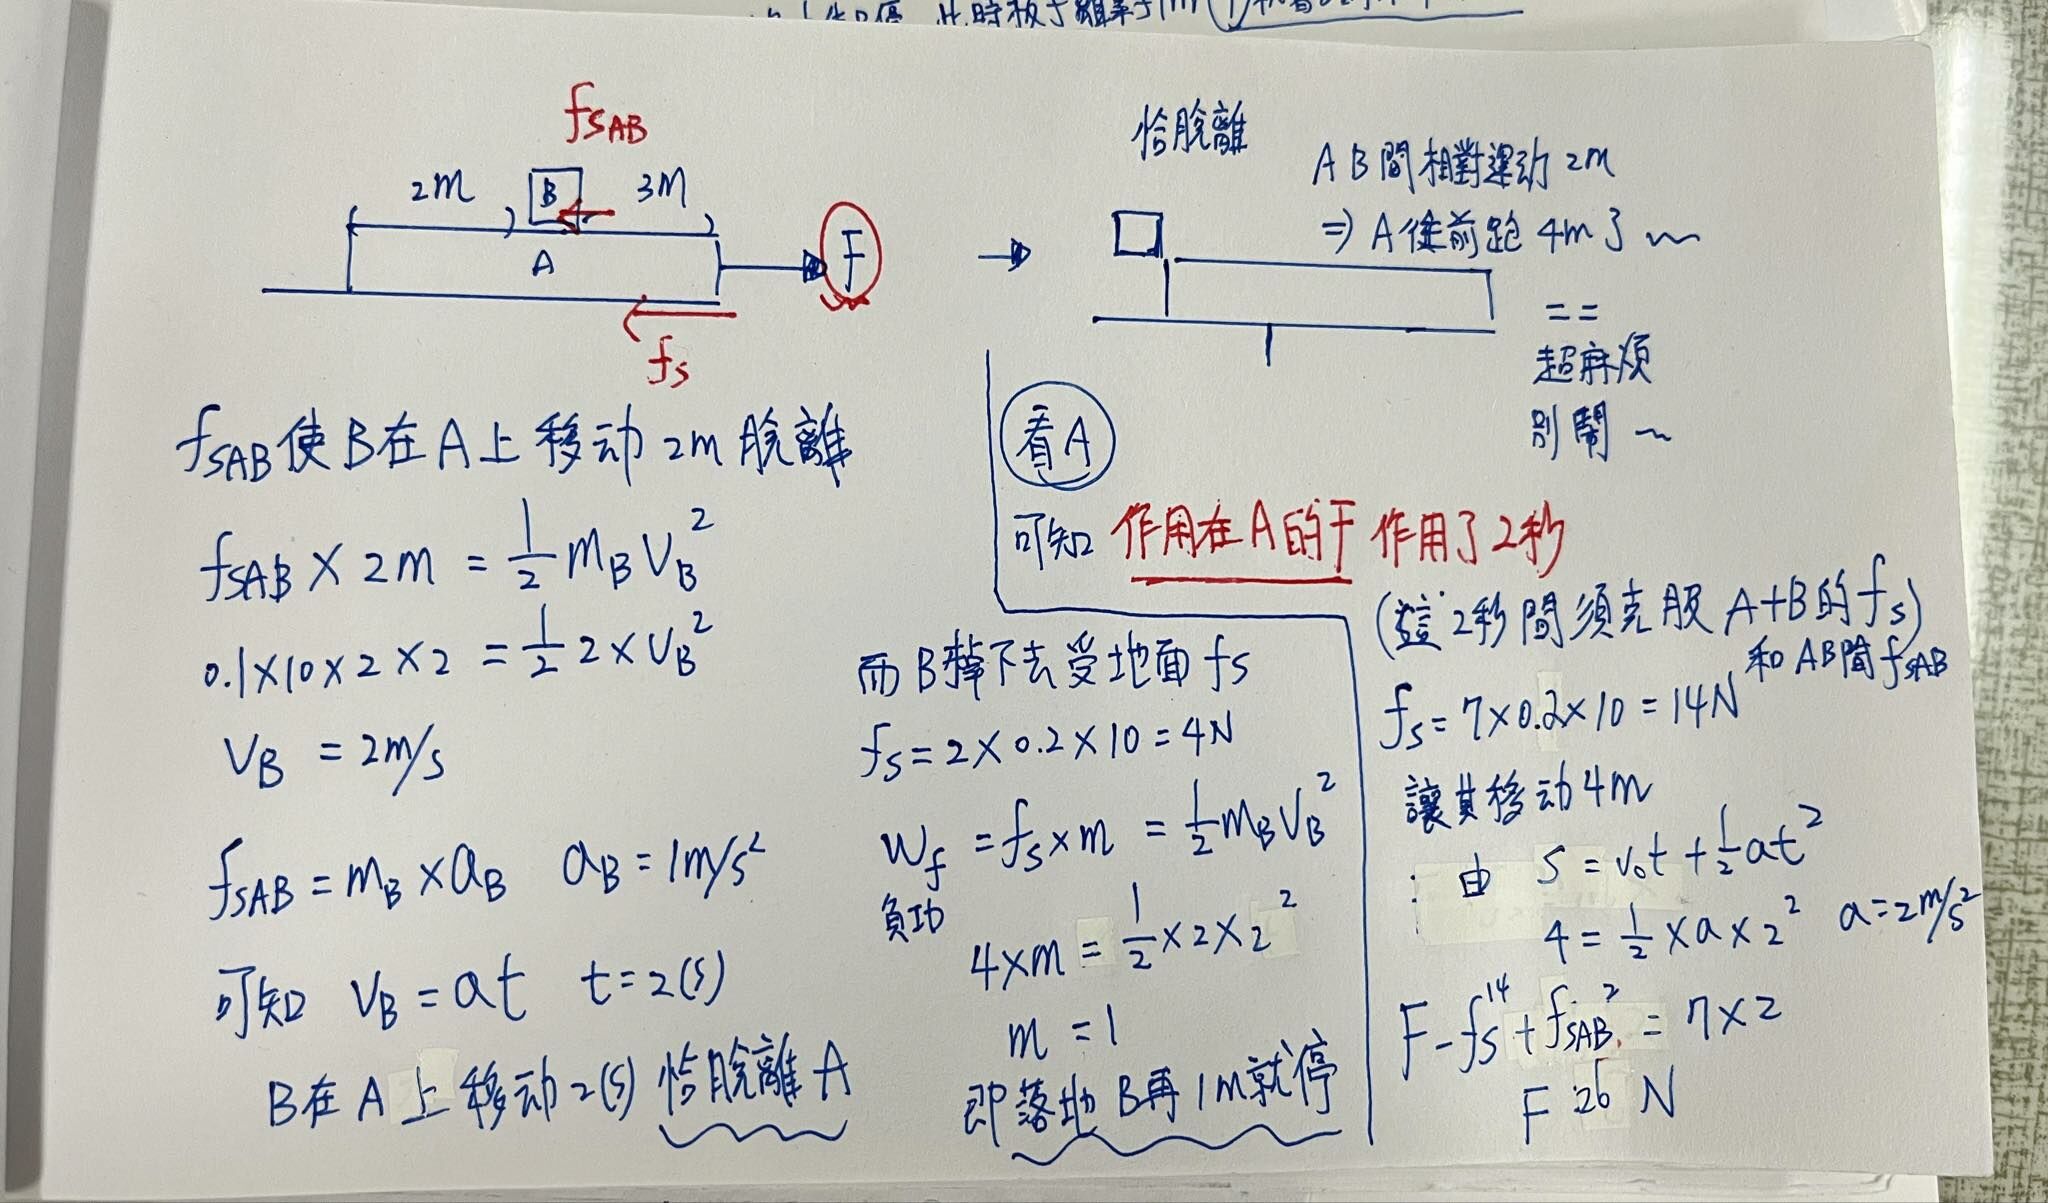 f_SAB
2m B 3m
A
F
f_s
恰脫離
AB間相對運动 2m
⇒ A 往前跑 4m 了 ~
= =
超麻煩
別鬧 ~
f_SAB 使 B 在 A 上 移动 2m 脫離
f_SAB × 2m = 1/2 m_B V_B^2
0.1×10×2×2 = 1/2 2×V_B^2
V_B = 2m/s
f_SAB = m_B × a_B a_B = 1m/s^2
可知 V_B = at t = 2(s)
B在 A 上 移动 2(s) 恰脫離 A
看A
可知 作用在A的F 作用了2秒
(這 2秒間須克服 A+B的 f_s)
和 AB間 f_SAB
而 B掉下去受地面 f_s
f_s = 2×0.2×10 = 4N
W_f = f_s × m = 1/2 m_B V_B^2
負功
4×m = 1/2 × 2 × 2^2
m = 1
即落地 B再 1m就停
f_s = 7×0.2×10 = 14N
讓其移动4m
: 由 S = v_0t + 1/2 at^2
4 = 1/2 × a × 2^2 a = 2m/s^2
F - f_s^14 + f_SAB^2 = 7×2
F 26 N